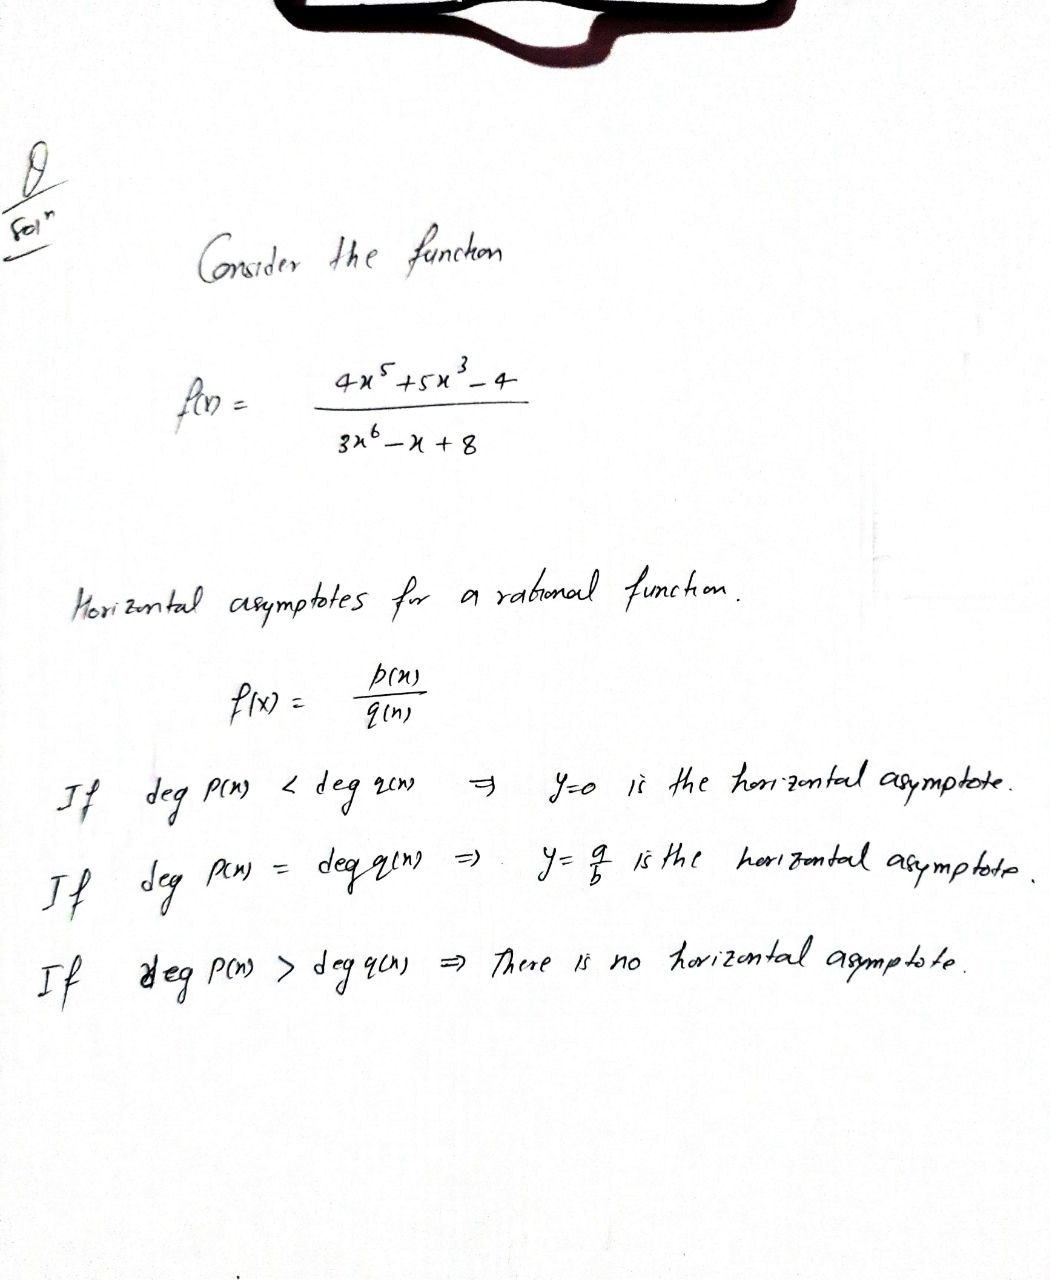 Q
Solⁿ
Consider the function
f(x) = 4x⁵+5x³-4 / 3x⁶-x+8
Horizontal asymptotes for a rational function.
f(x) = p(x) / q(x)
If deg p(x) < deg q(x) ⇒ y=0 is the horizontal asymptote.
If deg p(x) = deg q(x) ⇒ y= a/b is the horizontal asymptote.
If deg p(x) > deg q(x) ⇒ There is no horizontal asymptote.